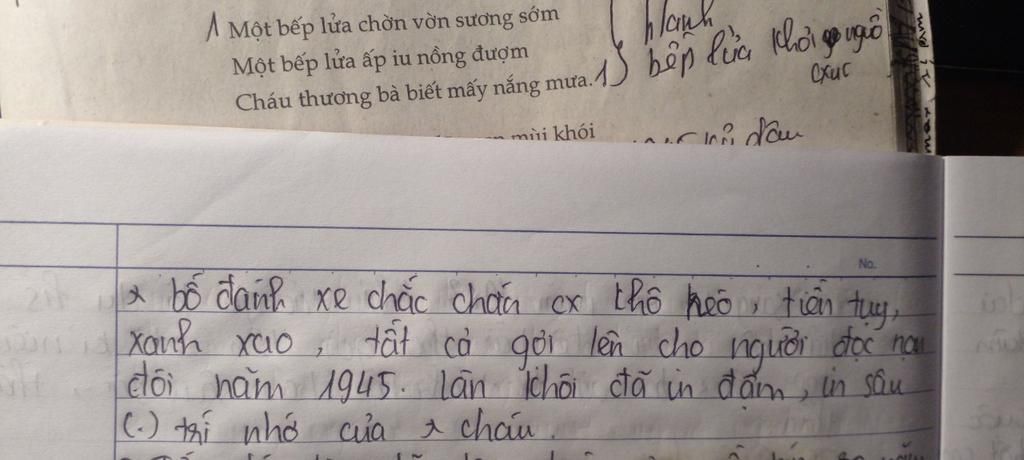 1 Một bếp lửa chờn vờn sương sớm
Một bếp lửa ấp iu nồng đượm
Cháu thương bà biết mấy nắng mưa. 1)
bếp lửa khơi nguồ
cxuc
mùi khói
đâu
No.
bố đánh xe chắc chắn cx thô heò, tiền tụy,
xanh xao, tất cả gợi lên cho người đọc nạn
đói năm 1945. làn khói đã in đậm, in sâu
(.) trí nhớ của cháu.